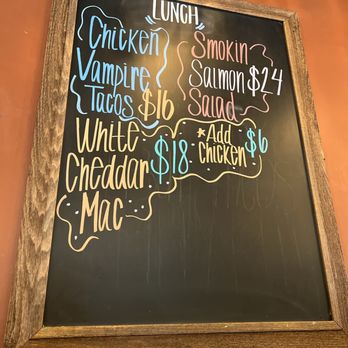 "LUNCH"
Chicken
Vampire
Tacos $16
Smokin
Salmon $24
Salad
White
Cheddar $18
Mac
*Add
Chicken $6